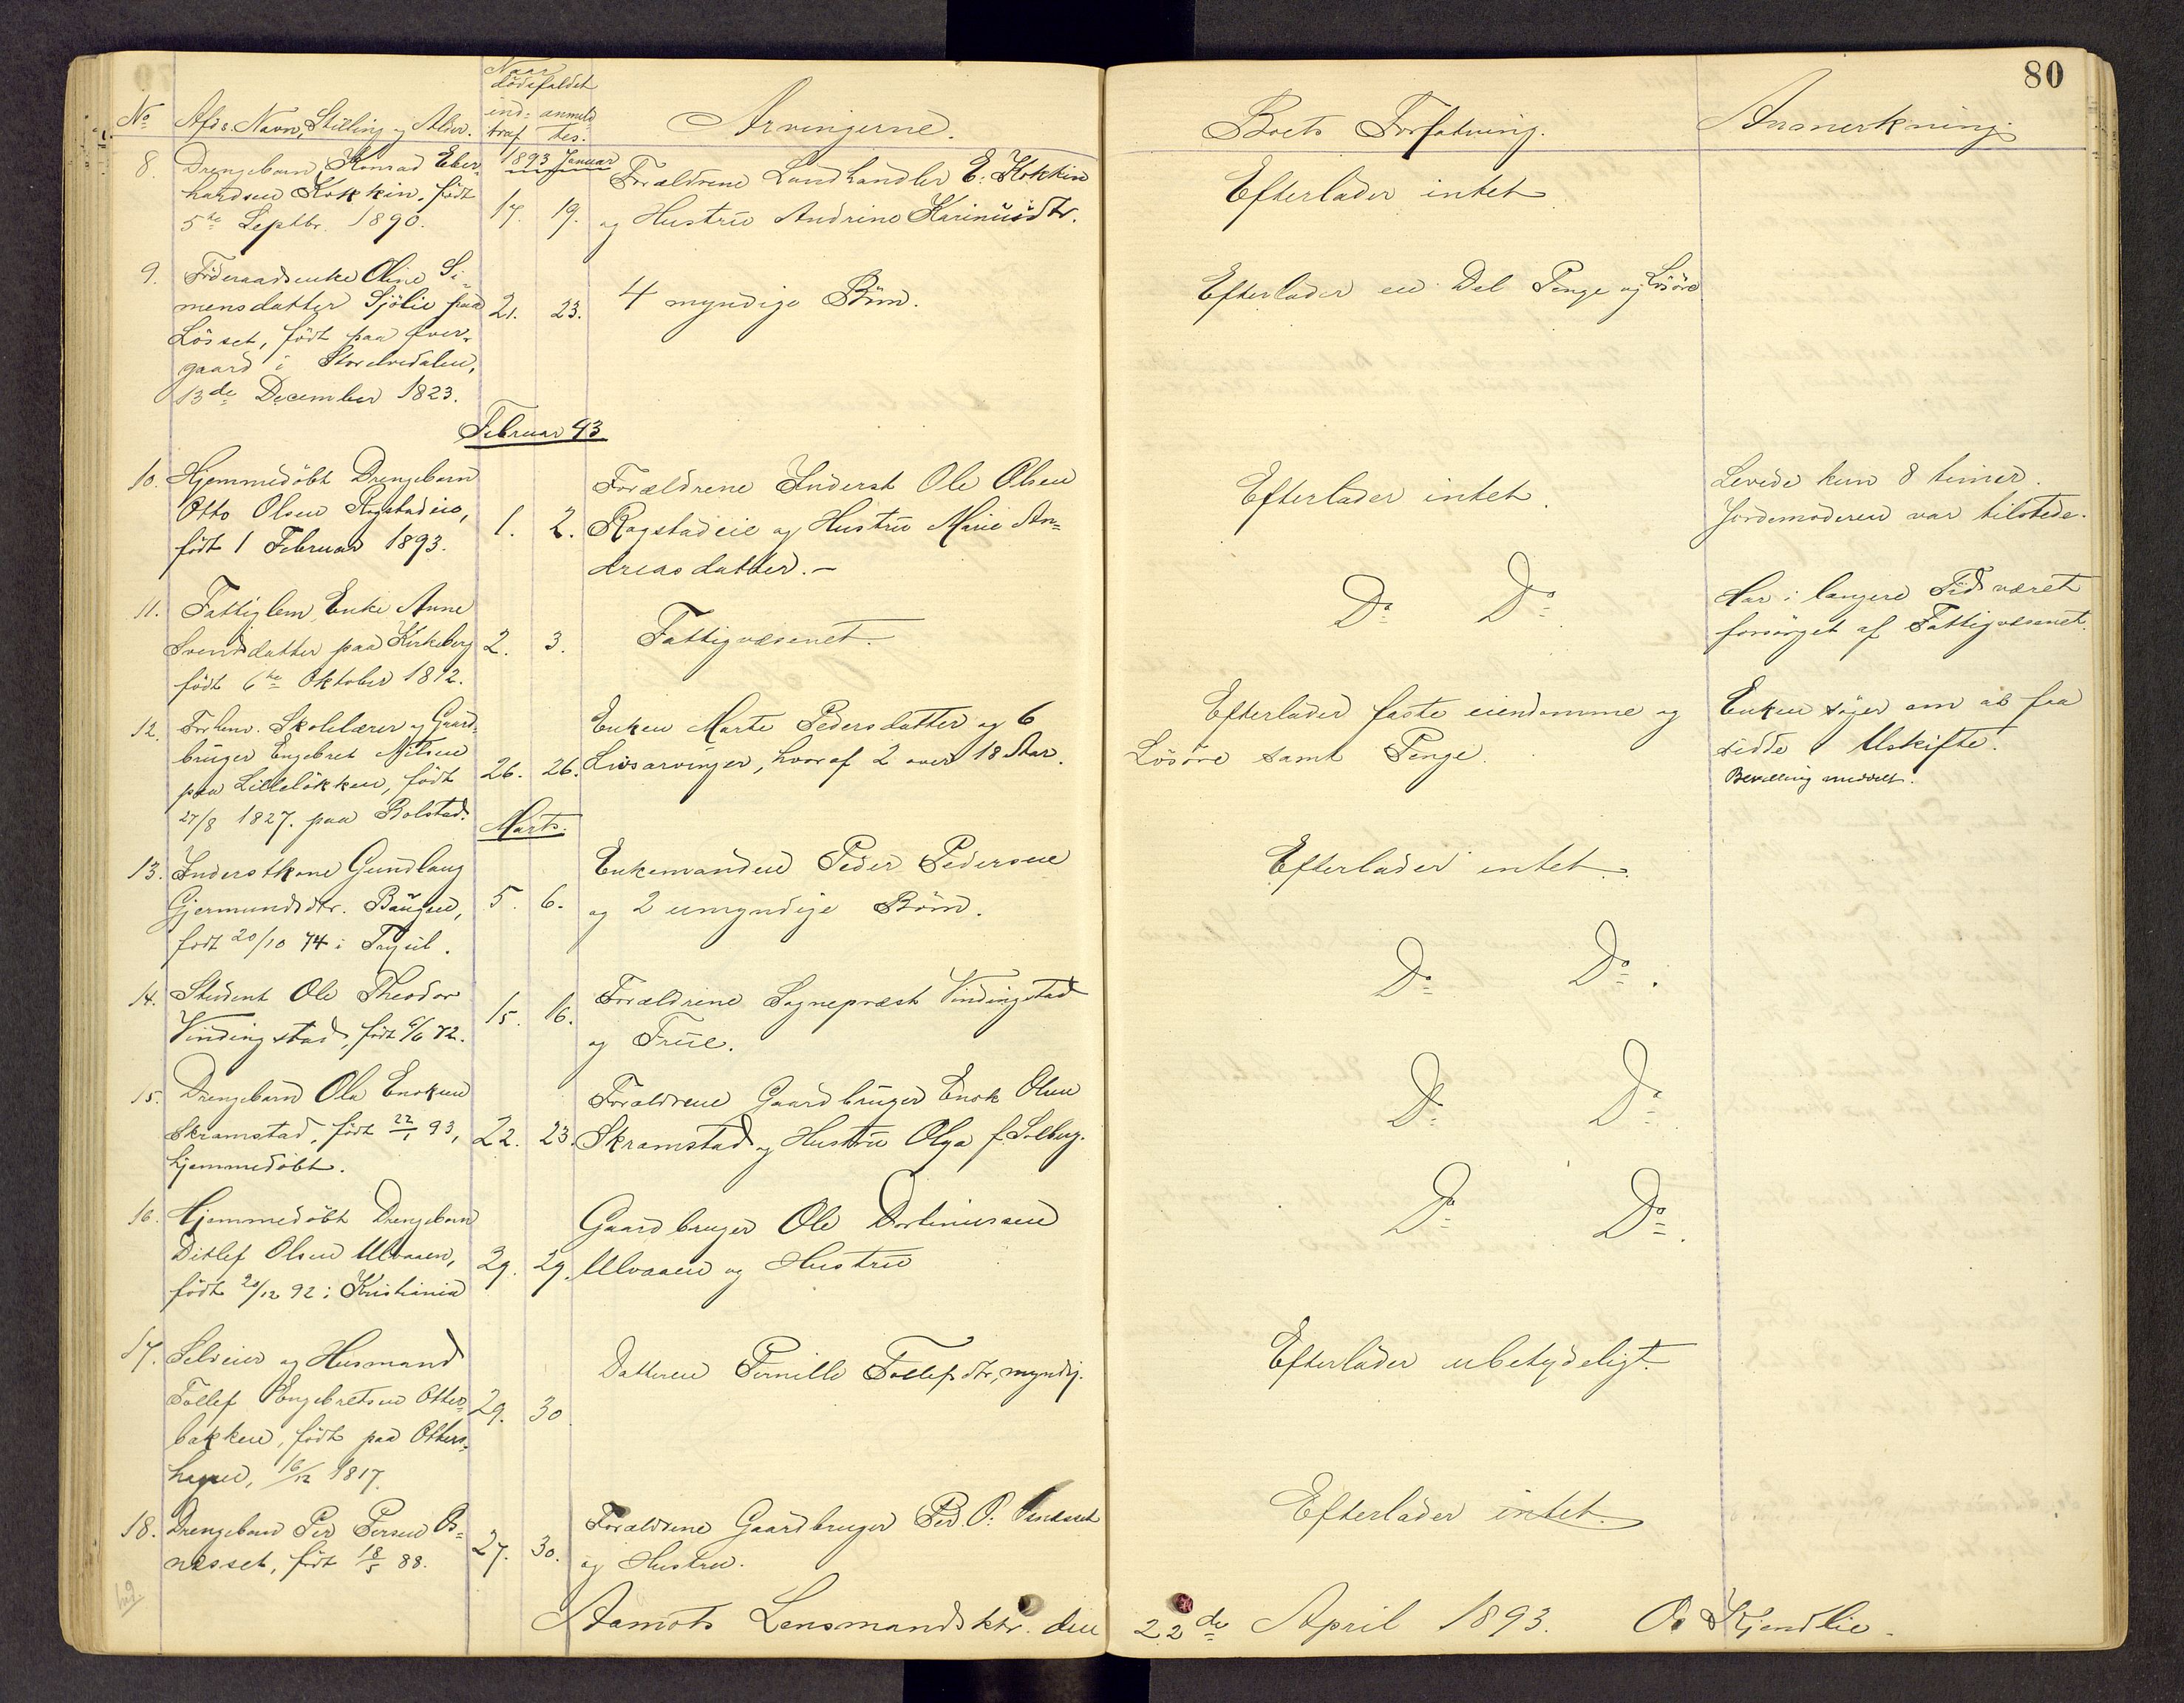 80
Naar
dödsfaldet
No Afds. Navn, Stilling og Alder. ind- anmeld Arvingerne. Boets Forfatning. Anmerkning.
traf tes.
8. Drengebarn Konrad Eber- 1893 Januar Forældrene Landhandler E. Kokkin Efterlader intet
hardsen Kokkin, födt 17. 19. og Hustru Andrine Karinusdtr.
5te Septbr. 1890.
9. Föderaadsenke Oline Si- 4 myndige Börn. Efterlader en Del Penge og Lösöre
mensdatter Sjölie paa 21. 23.
Lösset, födt paa Ever-
gaard i Storelvedalen,
13de December 1823.
Februar 93
10. Hjemmedöbt Drengebarn Forældrene Inderst Ole Olsen Efterlader intet. Levede kun 8 timer.
Otto Olsen Rogstadeie, 1. 2. Rogstadeie og Hustru Marie An- Jordemoderen var tilstede.
födt 1 Februar 1893. dreasdatter.-
11. Fattiglem, Enke Anne Fattigvæsenet. Do Do Har i længere Tid været
Svendsdatter paa Kirkeberg 2. 3. forsörget af Fattigvæsenet.
födt 6te Oktober 1812.
12. Forhenv. Skolelærer og Gaard- Enken Marte Pedersdatter og 6 Efterlader faste eiendomme og Enken söger om at faa
bruger Engebret Nilsen 26. 26. Livsarvinger, hvoraf 2 over 18 Aar. Lösöre samt Penge. sidde i Uskifte.
paa Lillelökken, födt Bevilling meddelt.
27/8 1827. paa Bolstad.
Marts.
13. Inderstkone Gundlaug Enkemanden Peder Pedersen Efterlader intet.
Gjermundsdtr. Baugen, 5. 6. og 2 umyndige Börn.
födt 20/10 74 i Trysil.
14. Student Ole Theodor 15. 16. Forældrene Sognepræst Vindingstad Do Do.
Vindingstad, födt 6/6 72. og Frue.
15. Drengebarn Ola Enoksen Forældrene Gaardbruger Enok Olsen Do Do
Skramstad, födt 22/1 93, 22. 23. Skramstad og Hustru Olga f. Solberg.
hjemmedöbt.
16. Hjemmedöbt Drengebarn Gaardbruger Ole Dortinussen Do Do.
Ditlef Olsen Ulvaaen, 29. 29. Ulvaaen og Hustru
födt 20/12 92 i Kristiania
17. Selveier og Husmand Datteren Pernille Tollefsdtr, myndig. Efterlader ubetydeligt.
Tollef Engebretsen Otter- 29. 30
bakken, födt paa Otters-
hagen, 16/12 1817.
18. Drengebarn Per Persen Os- 27. 30. Forældrene Gaardbruger Ped. P. Osnesset Efterlader intet.
nesset, födt 18/5 88. og Hustru.
Aamots Lensmandsktr. den 22de April 1893. O. Kjendlie.